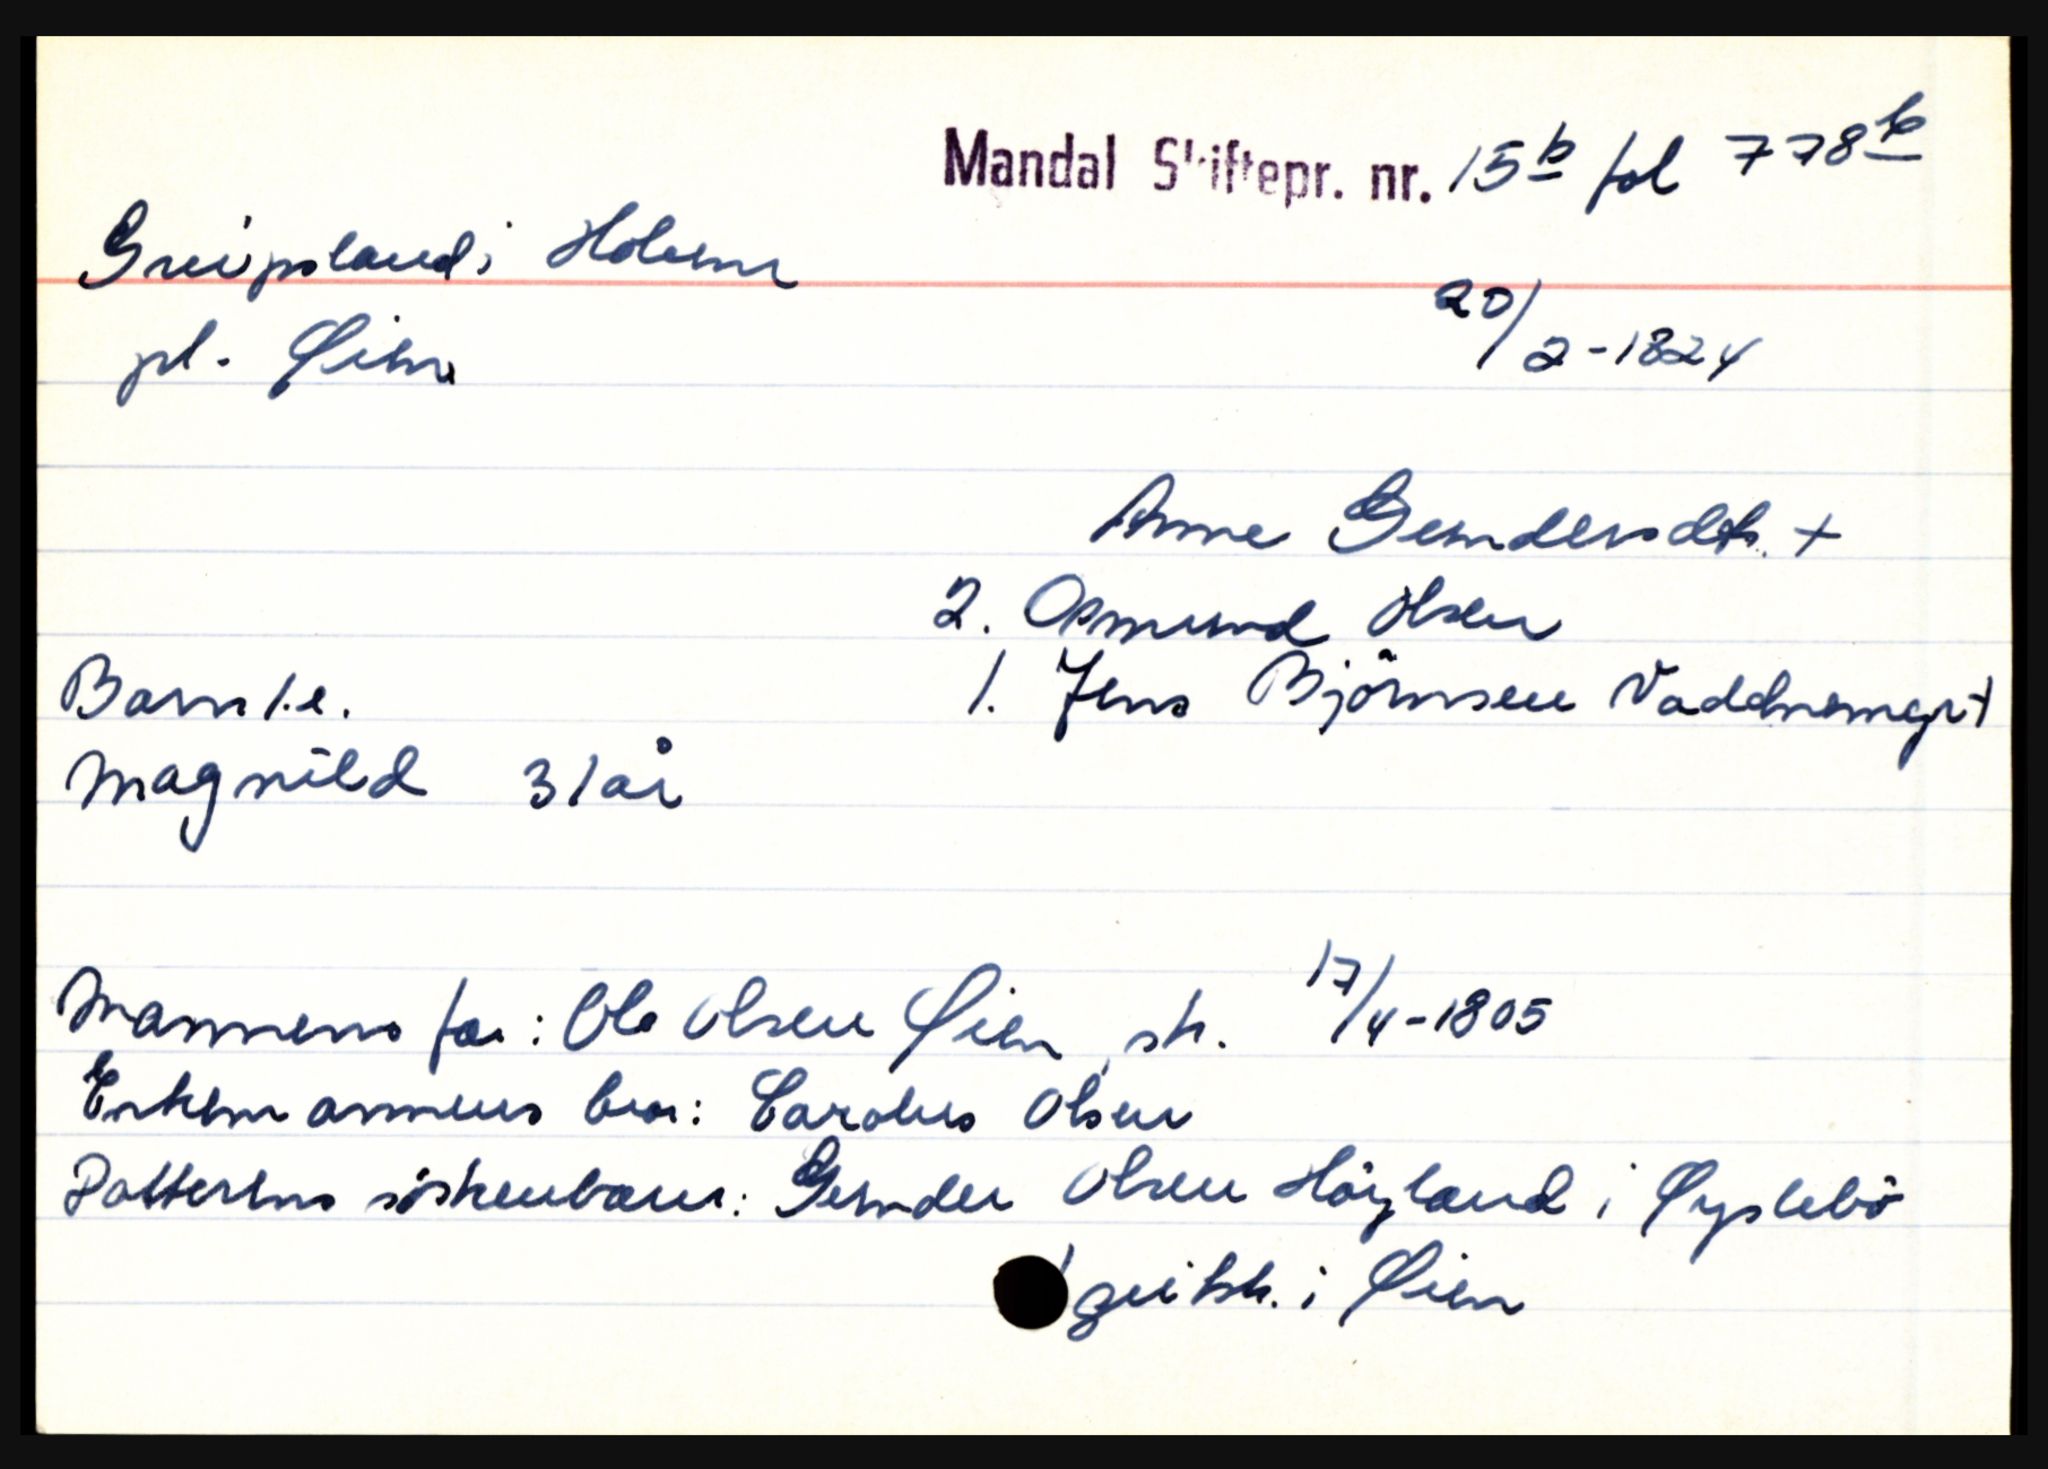 Mandal Skiftepr. nr. 15b fol 778b
Greipsland i Holum
pl. Øien
20/2-1824
Anne Gundersdtr. +
2. Osmund Olsen
Barn 1.e.
1. Jens Björnsen +
Magnild 31 år
Mannens far: Ole Olsen Øien sk. 17/4-1805
Enkemannens bror: Carolus Olsen
Datterens söskenbarn: Gunder Olsen Höyland i Øyslebö
i Øien